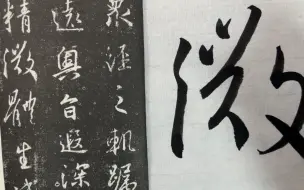 衆經之軌躅
遠奧旨遐深
精微體生
微